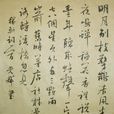 明月别枝驚鵲清風半
夜鳴蟬稻花香裏說
豐年聽取蛙聲一片
七八個星天外兩三點雨山
前舊時茅店社林邊
路轉溪橋忽見